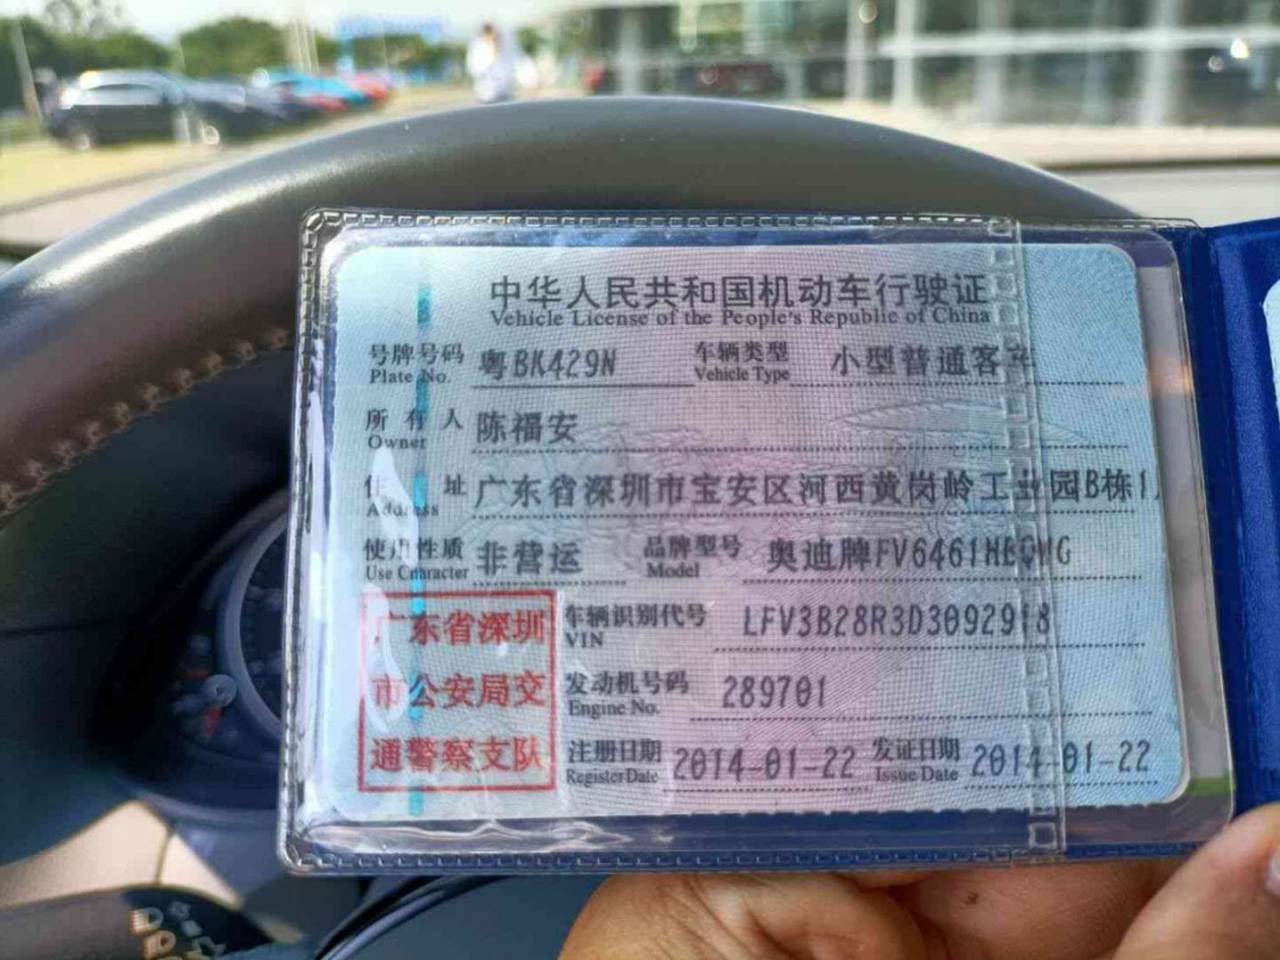 中华人民共和国机动车行驶证
Vehicle License of the People's Republic of China
号牌号码 粤BK429N 车辆类型 小型普通客车
Plate No. Vehicle Type
所有人 陈福安
Owner
住址 广东省深圳市宝安区河西黄岗岭工业园B栋1
Address
使用性质 非营运 品牌型号 奥迪牌
Use Character Model
车辆识别代号 LFV3B28R3D3092918
VIN
发动机号码 289701
Engine No.
注册日期 2014-01-22 发证日期 2014-01-22
Register Date Issue Date
广东省深圳
市公安局交
通警察支队